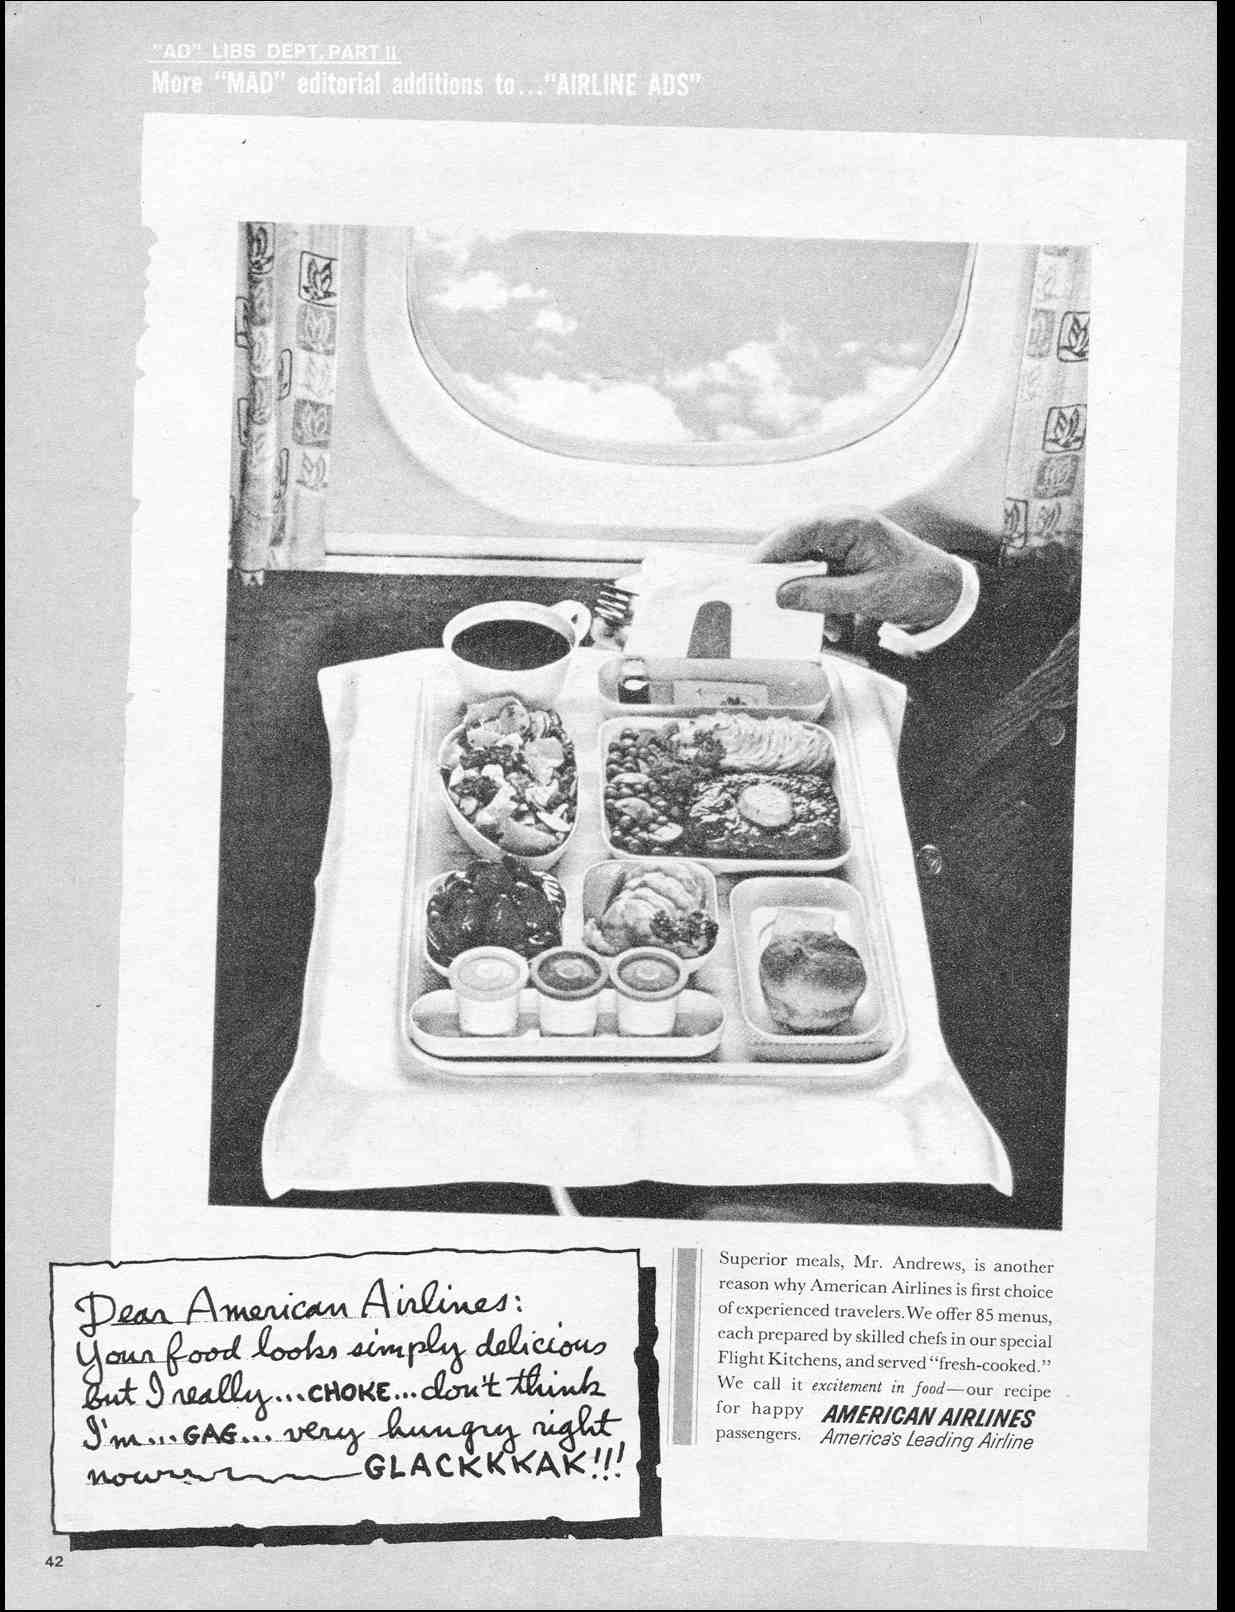 "AD" LIBS DEPT, PART II
More "MAD" editorial additions to..."AIRLINE ADS"
Dear American Airlines:
Your food looks simply delicious
but I really...CHOKE...don't think
I'm...GAG...very hungry right
now GLACKKKAK!!!
Superior meals, Mr. Andrews, is another
reason why American Airlines is first choice
of experienced travelers. We offer 85 menus,
each prepared by skilled chefs in our special
Flight Kitchens, and served "fresh-cooked."
We call it excitement in food—our recipe
for happy
passengers.
AMERICAN AIRLINES
America's Leading Airline
42